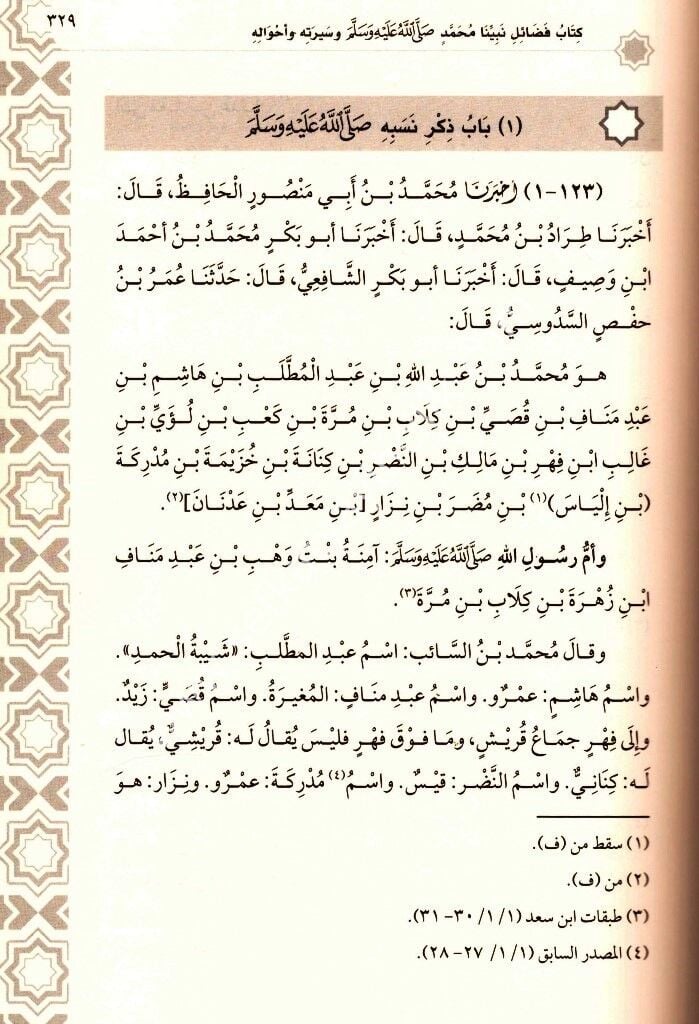 ٣٢٩
كِتَابُ فَضَائِلِ نَبِيِّنَا مُحَمَّدٍ صَلَّى اللَّهُ عَلَيْهِ وَسَلَّمَ وسَيرَتِه وأحْوَالِهِ
(١) بَابُ ذِكْرِ نَسَبِهِ صَلَّى اللَّهُ عَلَيْهِ وَسَلَّمَ
(١٢٣-١) أخبَرَنَا مُحَمَّدُ بْنُ أَبِي مَنْصُورٍ الْحَافِظُ، قَالَ:
أَخْبَرَنَا طِرَادُ بْنُ مُحَمَّدٍ، قَالَ: أَخْبَرَنَا أبو بَكْرٍ مُحَمَّدُ بْنُ أحْمَدَ
ابْنِ وَصِيفٍ، قَالَ: أَخْبَرَنَا أبو بَكْرٍ الشَّافِعِيُّ، قَالَ: حَدَّثَنَا عُمَرُ بْنُ
حفْصٍ السَّدُوسِيُّ، قَالَ:
هوَ مُحمَّدُ بْنُ عَبدِ اللهِ بْنِ عَبدِ الْمُطَّلَبِ بْنِ هَاشِمِ بْنِ
عَبْدِ مَنَافِ بْنِ قُصَيِّ بْنِ كِلَابِ بْنِ مُرَّةَ بْنِ كَعْبِ بْنِ لُؤَيِّ بْنِ
غَالِبِ ابْنِ فِهْرِ بْنِ مَالِكِ بْنِ النَّضْرِ بْنِ كِنَانَةَ بْنِ خُزَيْمَةَ بْنِ مُدْرِكَةَ
(بْنِ إِلْيَاسَ)(١) بْنِ مُضَرَ بْنِ نِزَارٍ [بْنِ مَعَدِّ بْنِ عَدْنَانَ](٢).
وأمُّ رسُولِ اللهِ صَلَّى اللَّهُ عَلَيْهِ وَسَلَّمَ: آمِنَةُ بنْتُ وَهْبِ بْنِ عَبدِ مَنَافِ
ابْنِ زُهْرَةَ بْنِ كِلَابِ بْنِ مُرَّةَ(٣).
وقالَ مُحمَّد بْنُ السَّائب: اسْمُ عبْدِ المطَّلبِ: «شَيْبَةُ الْحمدِ».
واسْمُ هَاشِمٍ: عمْرٌو. واسْمُ عبْدِ منَافٍ: المُغيرَةُ. واسْمُ قُصَيٍّ: زَيْدٌ.
وإلَى فِهْرٍ جمَاعُ قُريْشٍ، ومَا فوْقَ فهْرٍ فليْسَ يُقالُ لَه: قُريْشِيٌّ، يُقال
لَه: كِنَانِيٌّ. واسْمُ النَّضْر: قيْسٌ. واسْمُ(٤) مُدْرِكَةَ: عمْرٌو. ونِزَار: هوَ
(١) سقط من (ف).
(٢) من (ف).
(٣) طبقات ابن سعد (١/ ١/ ٣٠- ٣١).
(٤) المصدر السابق (١/ ١/ ٢٧- ٢٨).